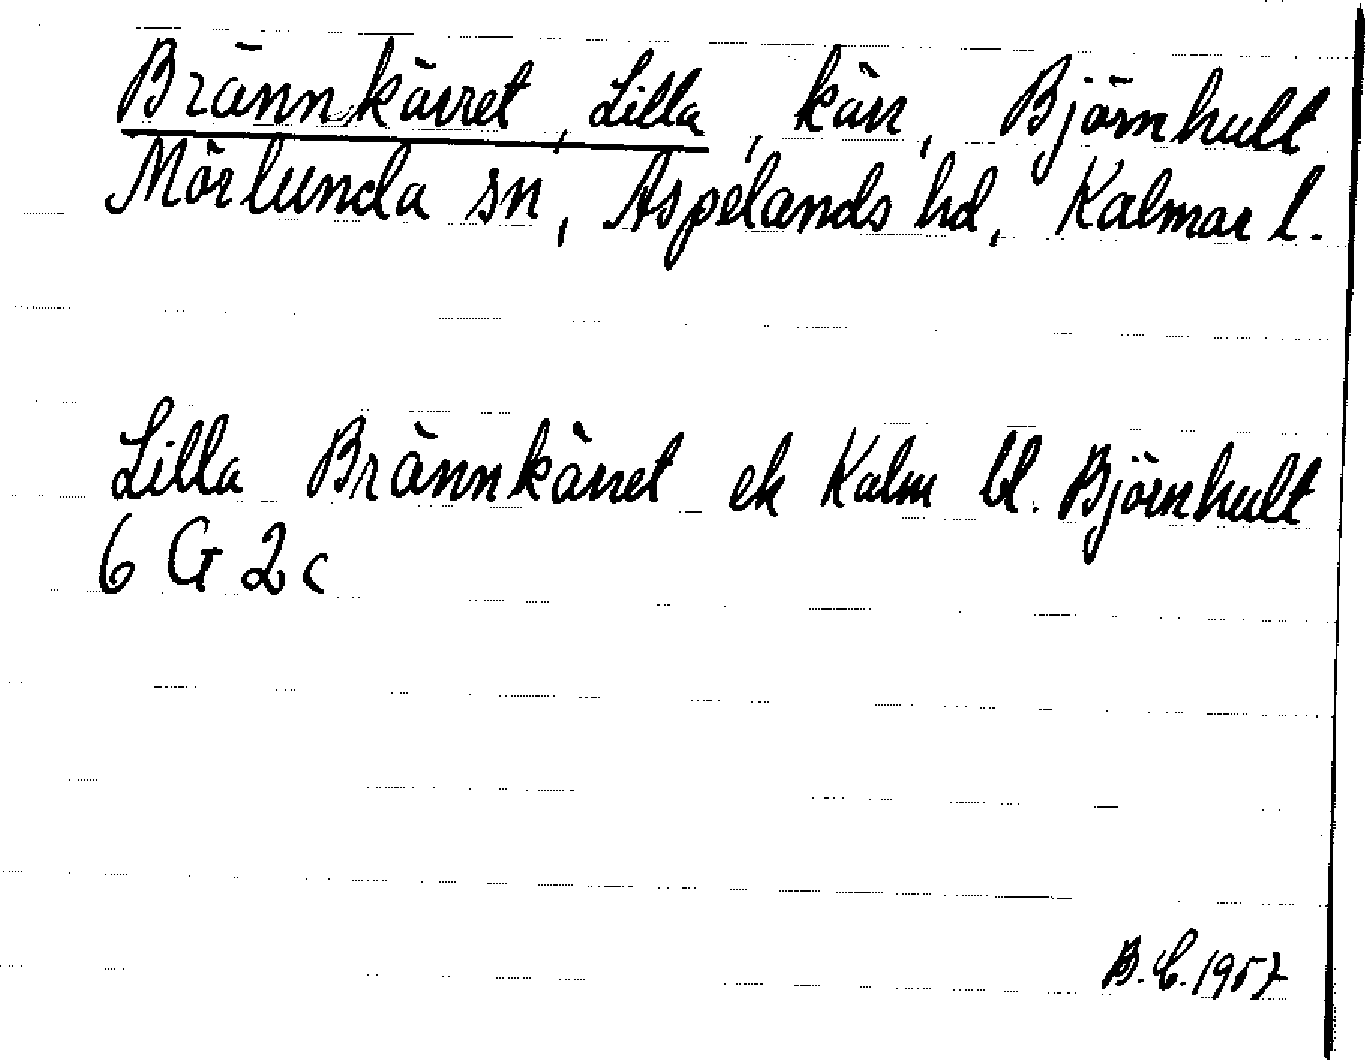 Brännkärret, Lilla, kärr, Björnhult
Mörlunda sn, Aspelands hd, Kalmar l.
Lilla Brännkärret ek Kalm bl. Björnhult
6 G 2c
B.C. 1957